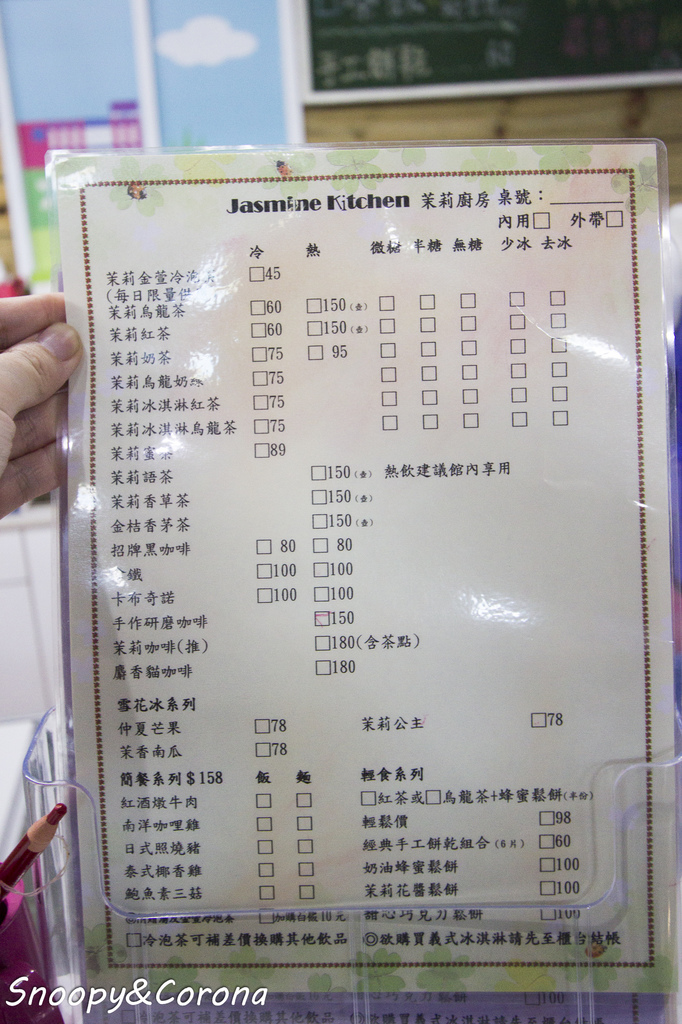 手工餅乾
Jasmine Kitchen 茉莉廚房 桌號：
內用□ 外帶□
冷 熱 微糖 半糖 無糖 少冰 去冰
茉莉金萱冷泡 □45
(每日限量供
茉莉烏龍茶 □60 □150(壺) □ □ □ □ □
茉莉紅茶 □60 □150(壺) □ □ □ □ □
茉莉奶茶 □75 □ 95 □ □ □ □ □
茉莉烏龍奶 □75 □ □ □ □ □
茉莉冰淇淋紅茶 □75 □ □ □ □ □
茉莉冰淇淋烏龍茶 □75 □ □ □ □ □
茉莉蜜茶 □89
茉莉語茶 □150(壺) 熱飲建議館內享用
茉莉香草茶 □150(壺)
金桔香茅茶 □150(壺)
招牌黑咖啡 □ 80 □ 80
拿鐵 □100 □100
卡布奇諾 □100 □100
手作研磨咖啡 □150
茉莉咖啡(推) □180(含茶點)
麝香貓咖啡 □180
雪花冰系列
仲夏芒果 □78 茉莉公主 □78
茉香南瓜 □78
簡餐系列$158 飯 麵 輕食系列
紅酒燉牛肉 □ □ □紅茶或□烏龍茶+蜂蜜鬆餅(半份)
南洋咖哩雞 □ □ 輕鬆價 □98
日式照燒豬 □ □ 經典手工餅乾組合(6片) □60
泰式椰香雞 □ □ 奶油蜂蜜鬆餅 □100
鮑魚素三菇 □ □ 茉莉花醬鬆餅 □100
□加購白飯10元 甜心巧克力鬆餅 □100
□冷泡茶可補差價換購其他飲品 ◎欲購買義式冰淇淋請先至櫃台結帳
Snoopy&Corona